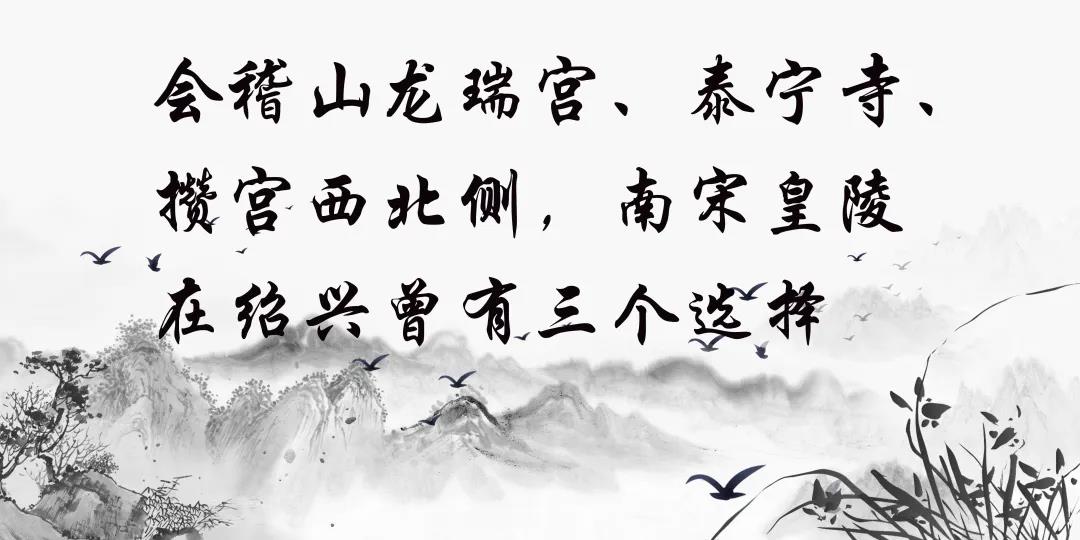 会稽山龙瑞宫、泰宁寺、
攒宫西北侧，南宋皇陵
在绍兴曾有三个选择